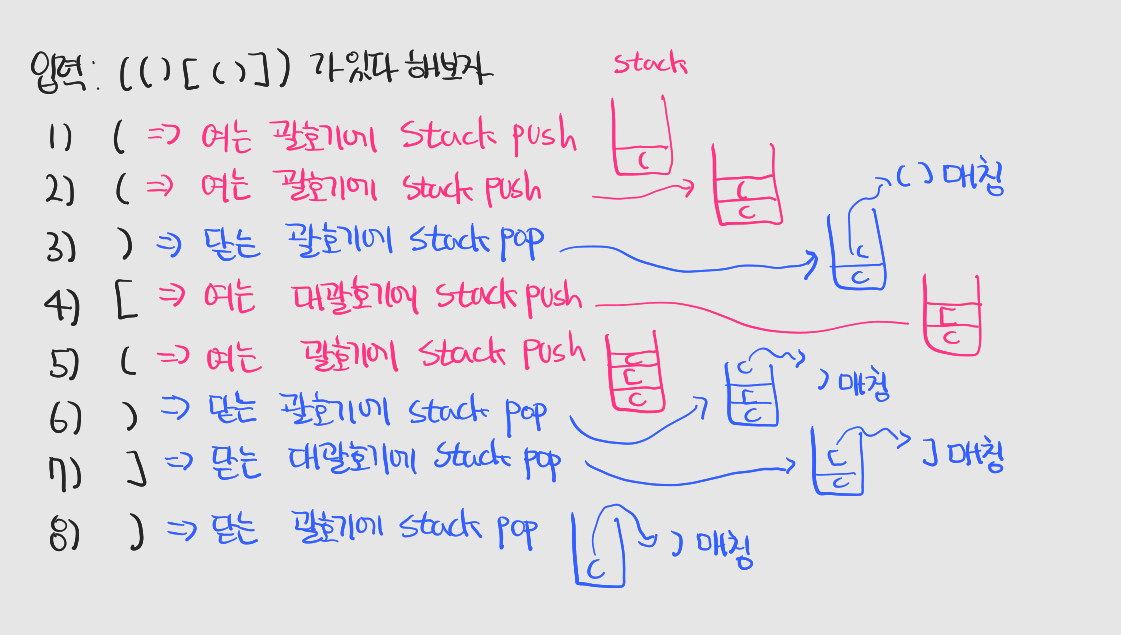 입력: (()[()]) 가있다 해보자
stack
1) ( => 여는 괄호기에 Stack push
(
2) ( => 여는 괄호기에 stack push
(
(
3) ) => 닫는 괄호기에 stack pop
( ) 매칭
(
(
4) [ => 여는 대괄호기에 stack push
[
(
5) ( => 여는 괄호기에 stack push
(
[
(
6) ) => 닫는 괄호기에 stack pop
(
[
(
) 매칭
7) ] => 닫는 대괄호기에 stack pop
[
(
] 매칭
8) ) => 닫는 괄호기에 stack pop
(
) 매칭